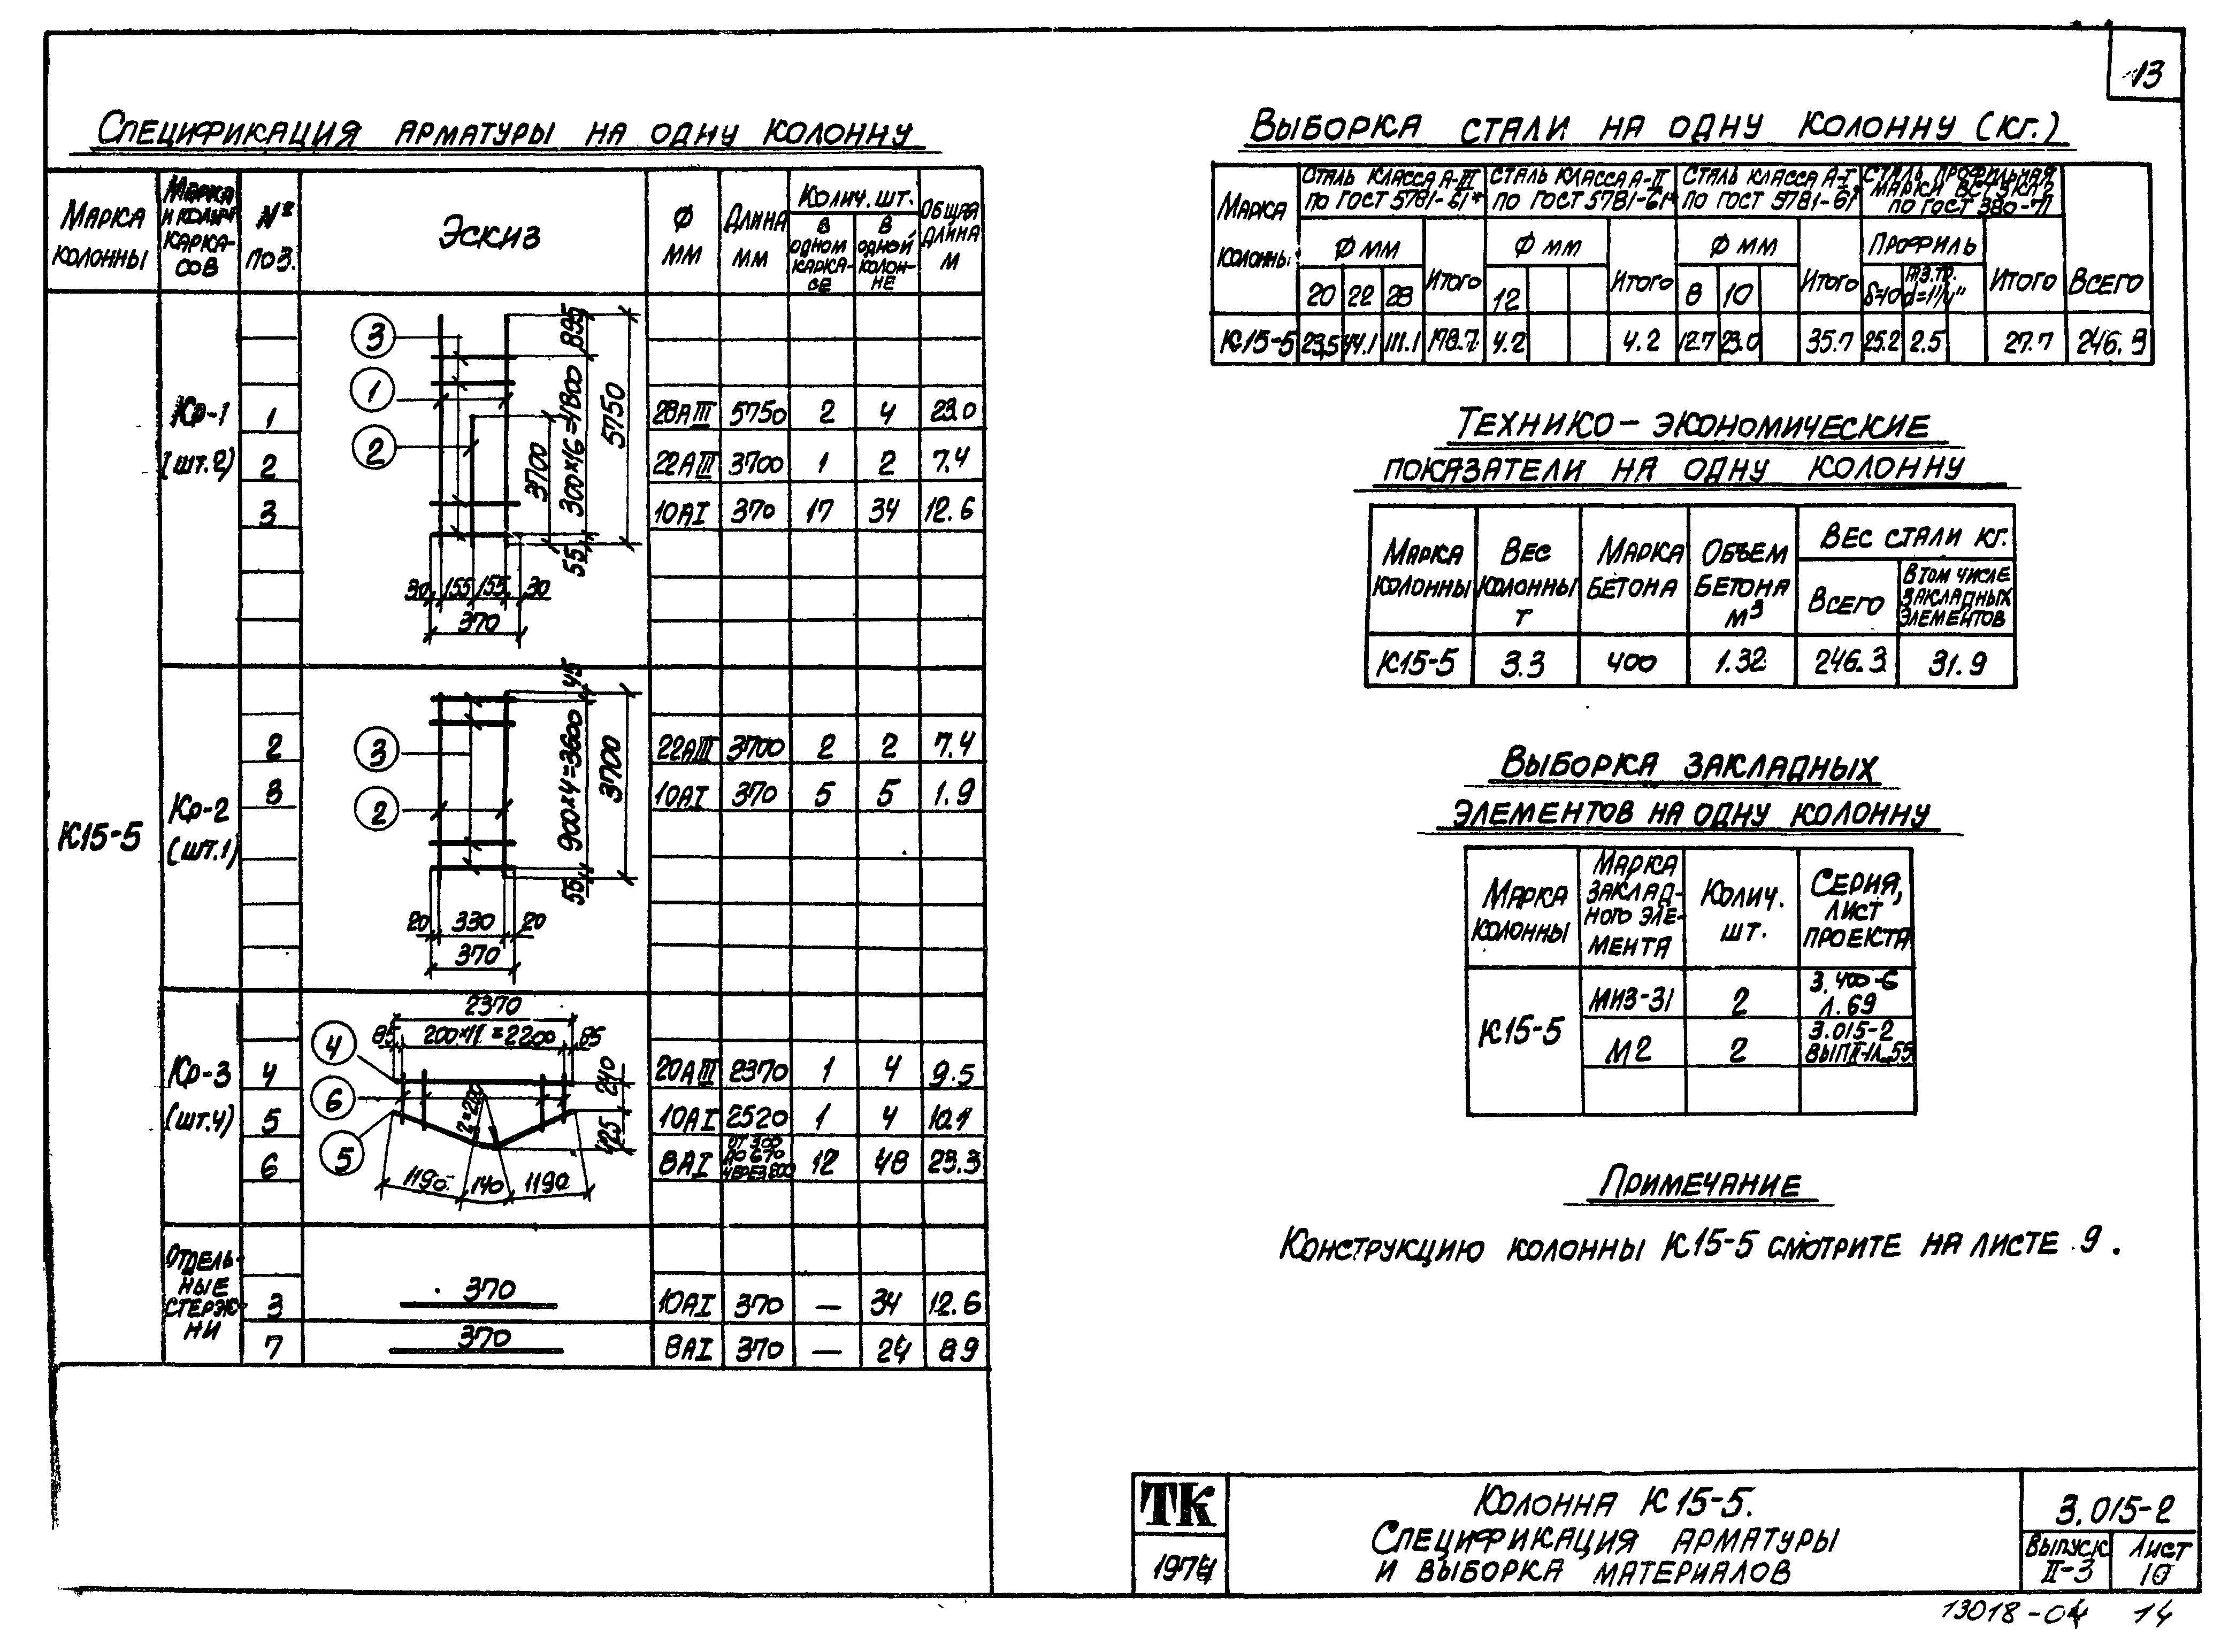 13
Спецификация арматуры на одну колонну
Марка колонны
Марка и колич. каркасов
№ поз.
Эскиз
Ø мм
Длина мм
Колич. шт.
в одном каркасе
в одной колонне
Общая длина м
К15-5
Кр-1 (шт.2)
3
1
2
895
300×16=4800
5750
3700
55
30 155 155 30
370
1 28АIII 5750 2 4 23.0
2 22АIII 3700 1 2 7.4
3 10АI 370 17 34 12.6
Кр-2 (шт.1)
3
2
45
900×4=3600
3700
55
20 330 20
370
2 22АIII 3700 2 2 7.4
3 10АI 370 5 5 1.9
Кр-3 (шт.4)
2370
85 200×11=2200 85
4
6
5
240
425
1190 140 1190
4 20АIII 2370 1 4 9.5
5 10АI 2520 1 4 10.1
6 8АI от 300 до 670 12 48 23.3
Отдельные стержни
3 370 10АI 370 — 34 12.6
7 370 8АI 370 — 24 8.9
Выборка стали на одну колонну (кг.)
Марка колонны
Сталь класса А-III по ГОСТ 5781-61*
Сталь класса А-II по ГОСТ 5781-61*
Сталь класса А-I по ГОСТ 5781-61*
Сталь профильная марки ВСт3кп2 по ГОСТ 380-71
Ø мм
Ø мм
Ø мм
Профиль
20 22 28 Итого 12 Итого 8 10 Итого δ=10 тз.тр. d=1¼" Итого Всего
К15-5 23.5 44.1 111.1 178.7 4.2 4.2 12.7 23.0 35.7 25.2 2.5 27.7 246.3
Технико-экономические
показатели на одну колонну
Марка колонны
Вес колонны т
Марка бетона
Объем бетона м3
Вес стали кг.
Всего
В том числе закладных элементов
К15-5 3.3 400 1.32 246.3 31.9
Выборка закладных
элементов на одну колонну
Марка колонны
Марка закладного элемента
Колич. шт.
Серия, лист проекта
К15-5
МИ3-31 2 3.400-6 л.69
М2 2 3.015-2 вып.II-1 л.55
Примечание
Конструкцию колонны К15-5 смотрите на листе 9.
ТК
1974
Колонна К15-5.
Спецификация арматуры
и выборка материалов
3.015-2
Выпуск II-3
Лист 10
13018-04 14